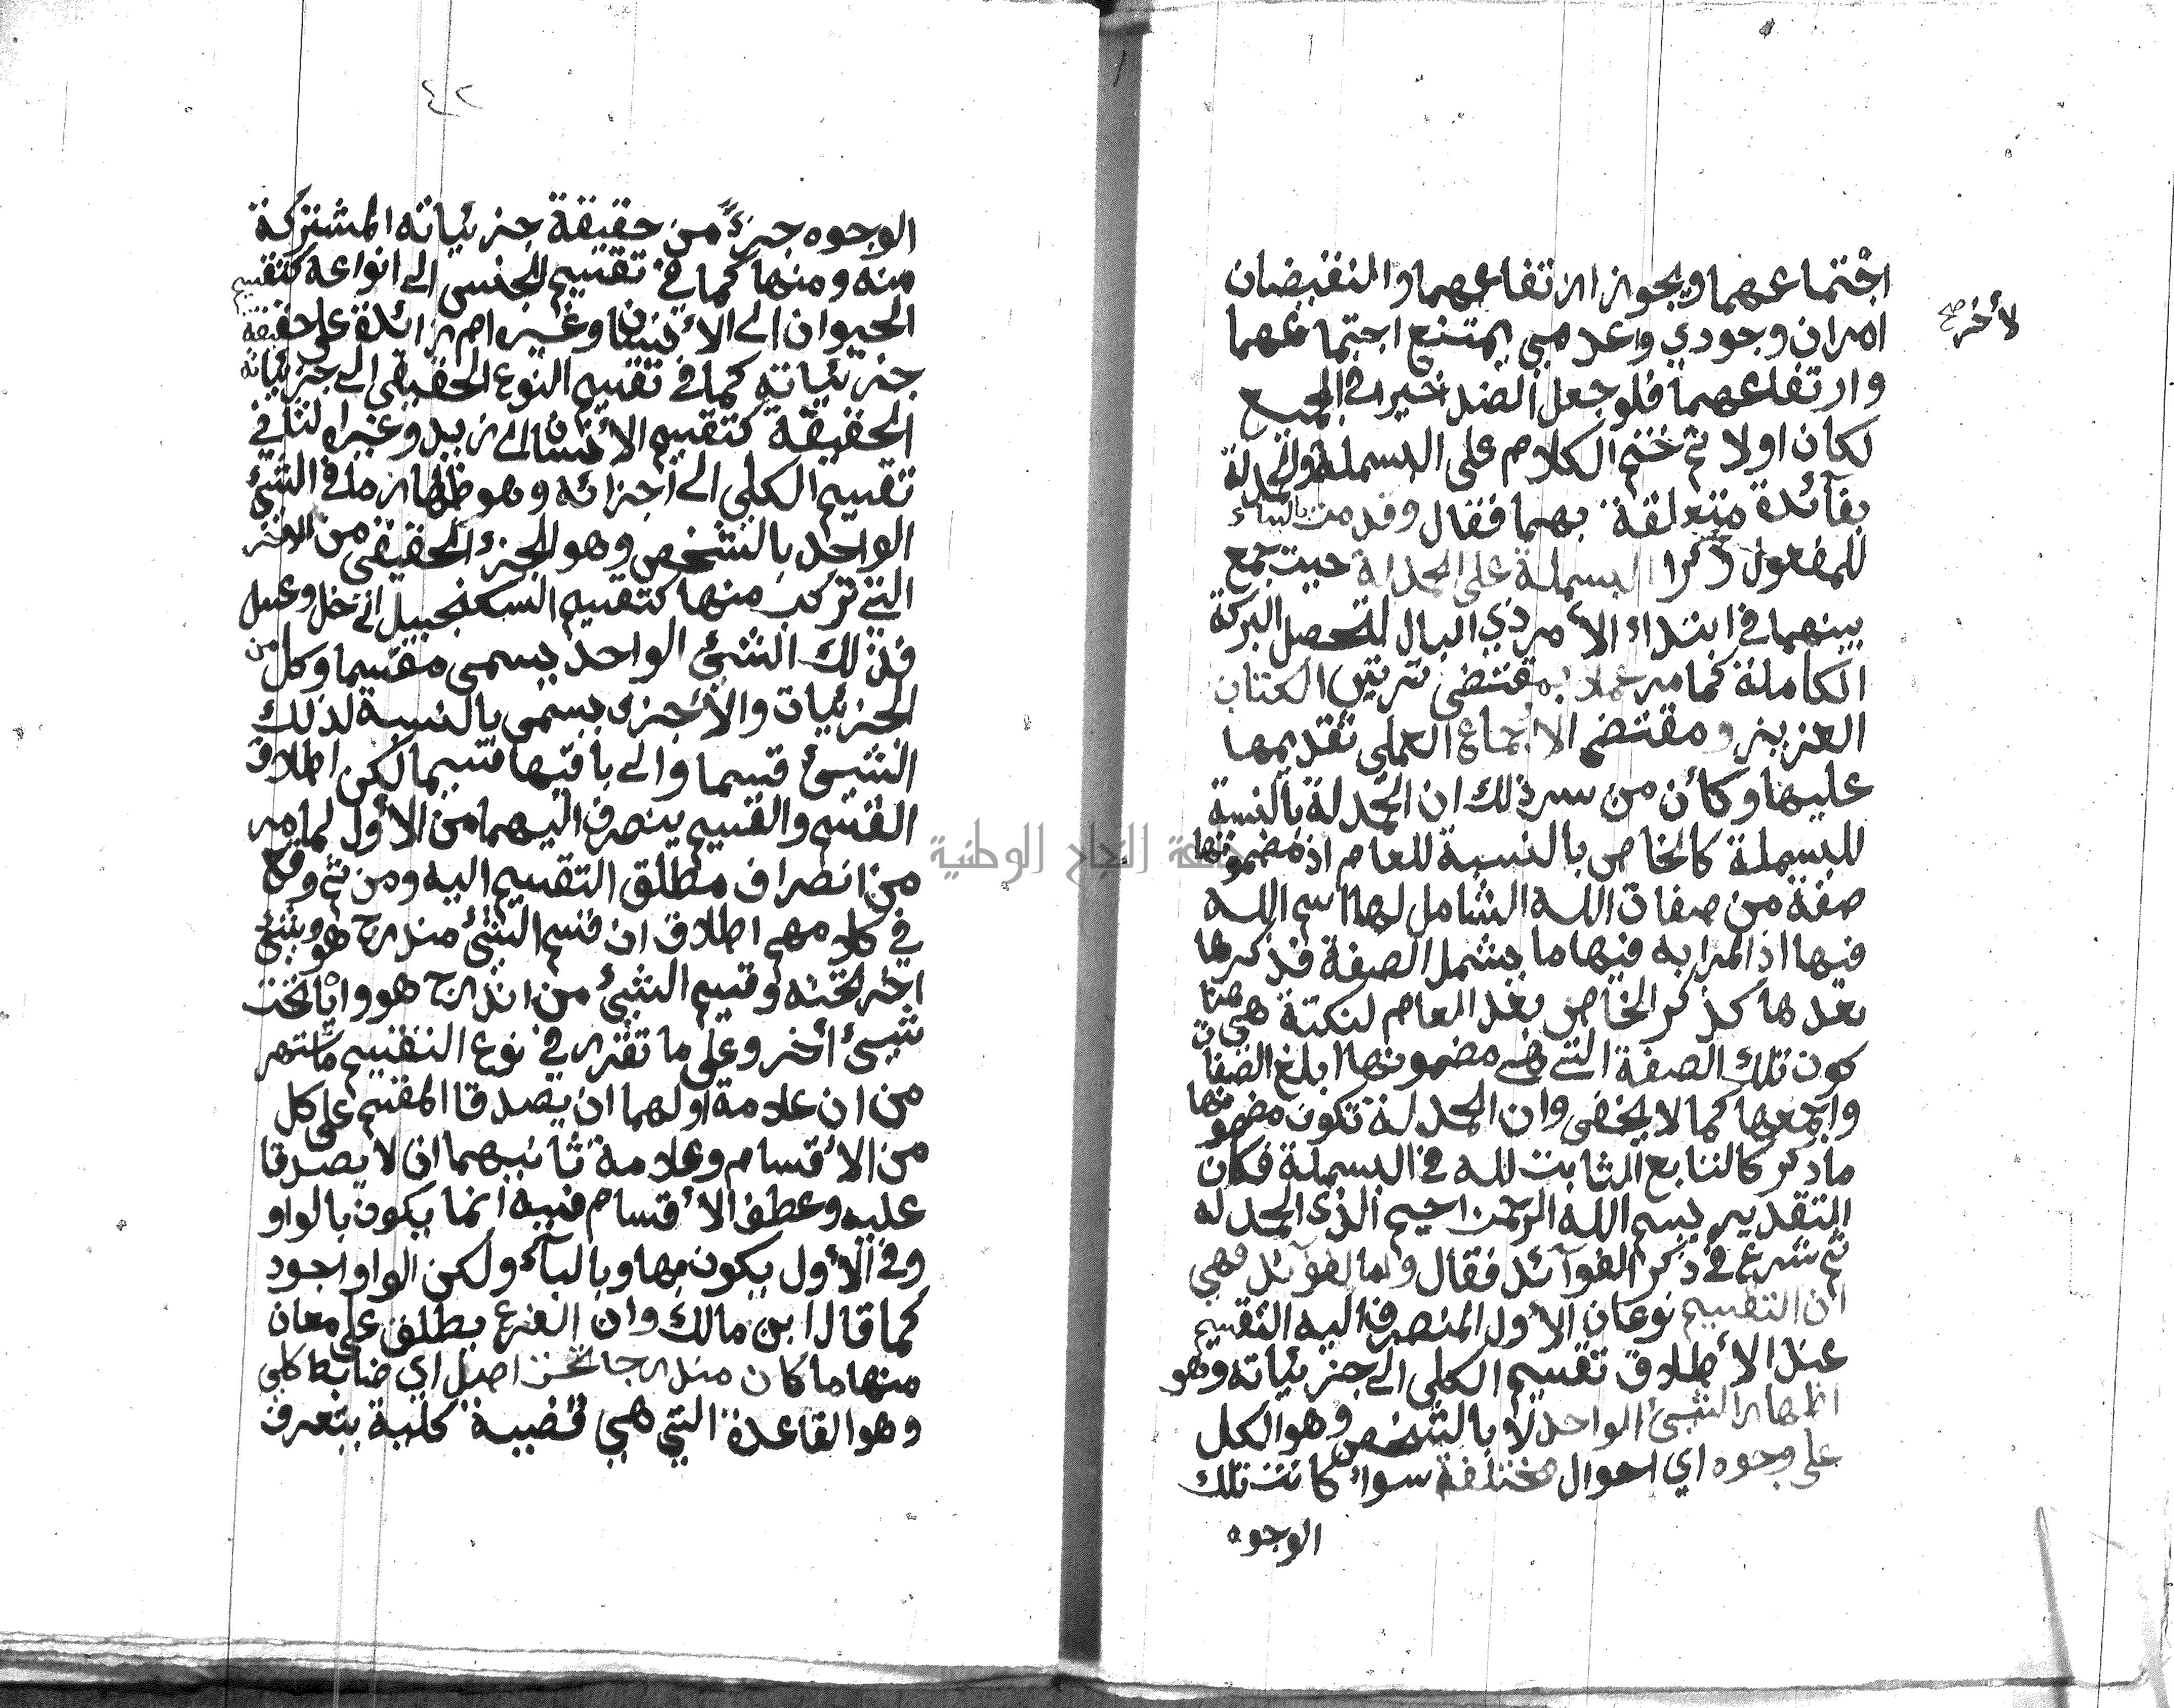 اجتماعهما ويجوز ارتفاعهما والنقيضان
امران وجودي وعدمي يمتنع اجتماعهما
وارتفاعهما فلو جعل الضد خيرا في الجميع
لكان اولا ثم ختم الكلام على البسملة والحمدلة
بفآئدة متعلقة بهما فقال وقدمت بالبناء
للمفعول ذكرا البسملة على الحمدلة حيث جمع
بينهما في ابتداء الأمر ذي البال لتحصل البركة
الكاملة كما مر عملا بمقتضى ترتيب الكتاب
العزيز ومقتضى الاجماع العملي تقديمها
عليها وكأن من سر ذلك ان الحمدلة بالنسبة
للبسملة كالخاص بالنسبة للعام اذ مضمونها
صفة من صفات الله الشامل لها اسم الله
فيها اذ المرا به فيها ما يشمل الصفة فذكرها
بعدها كذكر الخاص بعد العام لنكتة هي هنا
كون تلك الصفة التي هي مضمونها ابلغ الصفات
واجمعها كما لا يخفى وان الحمدلة تكون مضمونها
ما ذكر كالتابع الثابت لله في البسملة فكان
التقدير بسم الله الرحمن احيم الذي الحمد له
ثم شرع في ذكر الفوآئد فقال واما الفوآئد فهي
ان التقسيم نوعان الأول المنصرف اليه التقسيم
عند الأطلاق تقسيم الكلي الى جزئياته وهو
اظهار الشيئ الواحد لا بالشخص وهو الكل
على وجوه اي احوال مختلفة سواء كانت تلك
الوجوه
لأخر صح
٤٢
الوجوه جزءً من حقيقة جزئياته المشتركة
منه ومنها كما في تقسيم الجنس الى انواعه كتقسيم
الحيوان الى الأنسان وغيره ام زائدة على حقيقة
جزئياته كما في تقسيم النوع الحقيقي الى جزئياته
الحقيقة كتقسيم الأنسان الى زيد وغيره الثاني
تقسيم الكلي الى اجزائه وهو ظهار ما في الشئ
الواحد بالشخص وهو الجزء الحقيقي من الاخر
التي تركب منها كتقسيم السكنجبيل الى خل وعسل
فذلك الشئ الواحد يسمى مقسما وكل من
الجزئيات والأجزى يسمى بالنسبة لذلك
الشيئ قسما والى باقيها قسيما لكن اطلاق
القسم والقسيم ينصرف اليهما من الأول لما مر
من انصراف مطلق التقسيم اليه ومن ثم وقع
في كلامهم اطلاق ان قسم الشئ مندرج هو وشئ
اخر تحته وقسيم الشيئ من اندرج هو واياتحت
شيئ أخر وعلى ما تقرر في نوع التقسيم ما شتهر
من ان علامة اولهما ان يصدقا المقسم على كل
من الأقسام وعلامة ثانيهما ان لا يصدقا
عليه وعطف الأقسام فيه انما يكون بالواو
وفي الأول يكون بها وبالبآء ولكن الواو اجود
كما قال ابن مالك وان الفرع يطلق على معان
منها ما كان مندرجا تحت اصل اي ضابط كلي
وهو القاعدة التي هي قضية كلية يتعرف
جامعة النجاح الوطنية